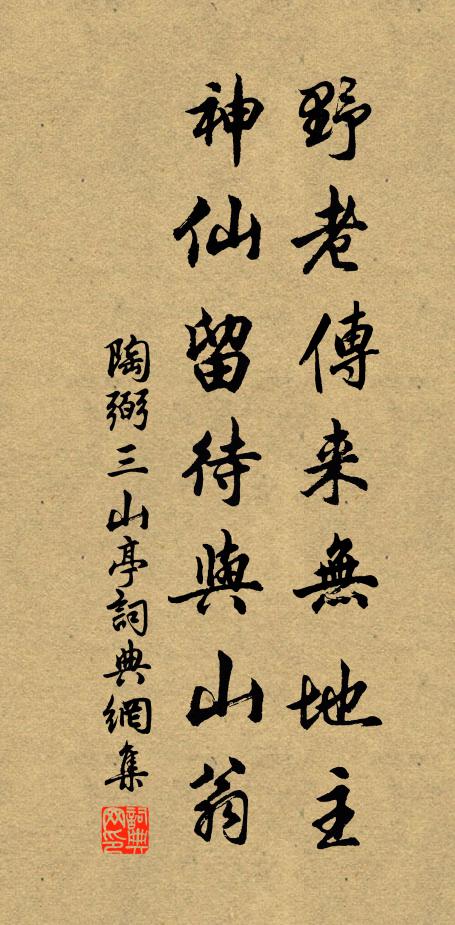 野老傳来無地主
神仙留待與山翁
陶弼三山亭詞典網集
詞典网印